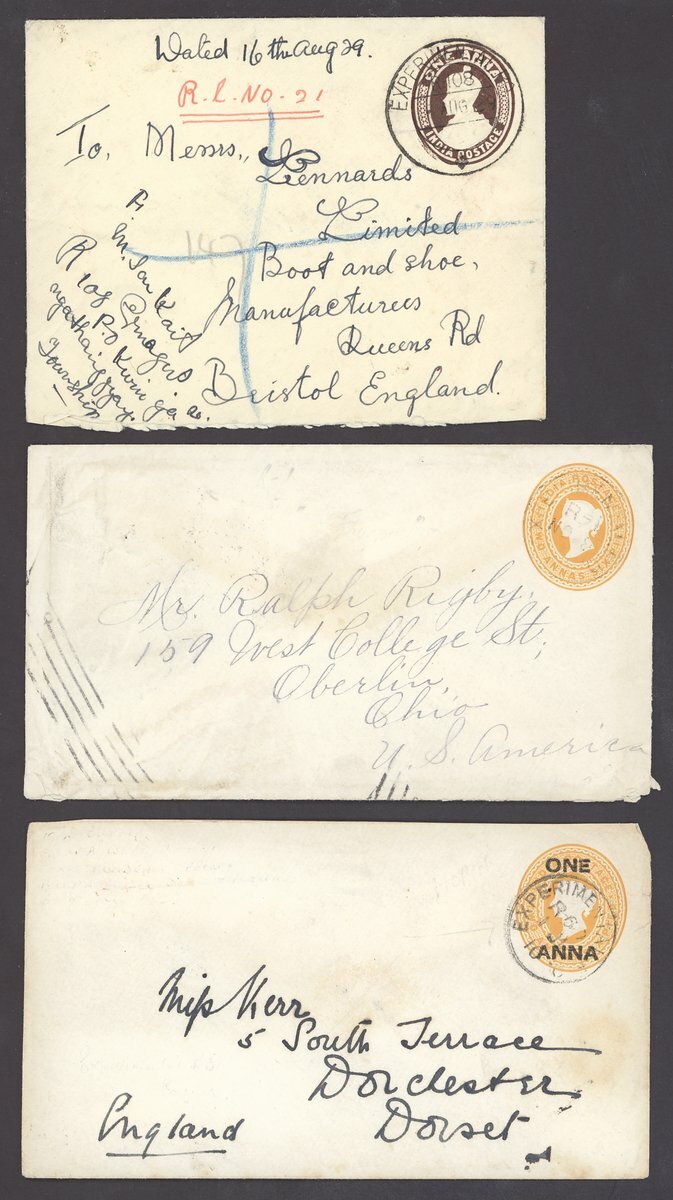 Dated 16th Aug 29.
R.L. NO. 21
EXPERIM
108
UG
ONE ANNA
INDIA POSTAGE
To, Messrs., Lennards
Limited
Boot and shoe,
Manufacturers
Queens Rd
Bristol England.
147
F.
R 108
P.O
Township
INDIA POSTAGE
ANNAS SIX
Mr. Ralph Rigby,
159 West College St.,
Oberlin,
Ohio
U. S. America
ONE
ANNA
EXPERIMENTAL
Miss Kerr
5 South Terrace
Dorchester
Dorset
England